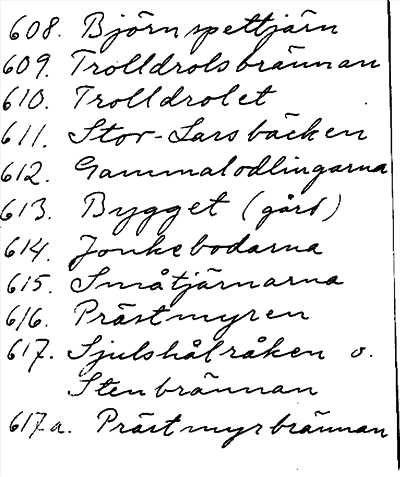 608. Björnspettjärn
609. Trolldrolsbrännan
610. Trolldrolet
611. Stor-Larsbäcken
612. Gammalodlingarna
613. Bygget (gård)
614. Jonkebodarna
615. Småtjärnarna
616. Prästmyren
617. Sjulshålråken o.
Stenbrännan
617a. Prästmyrbrännan